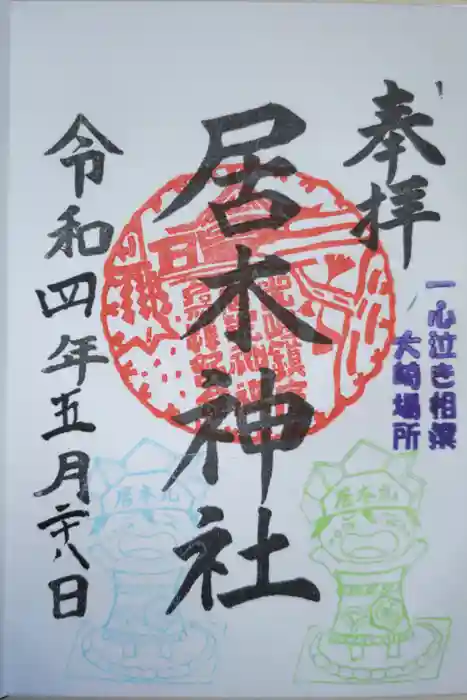 奉拝
一心泣き相撲
大崎場所
居木神社
令和四年五月二十八日
居木丸
居木丸